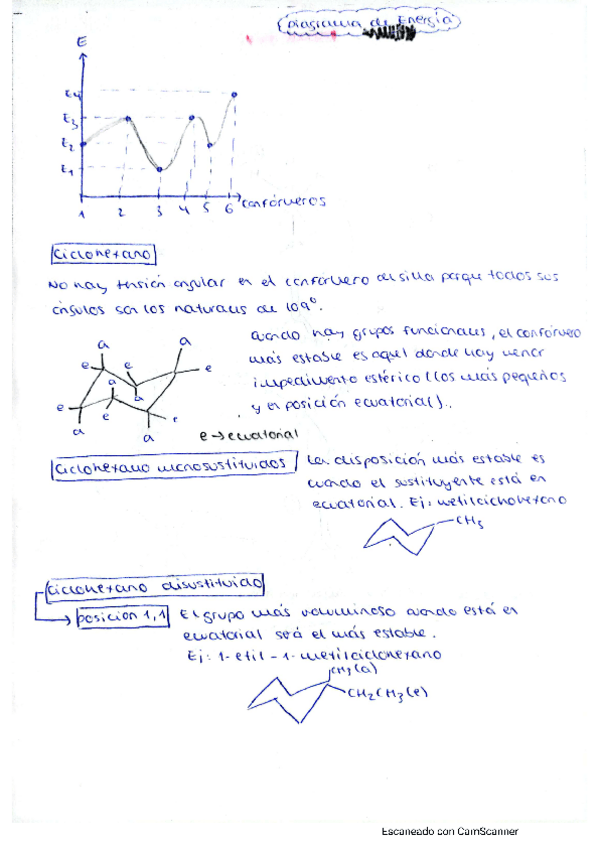 Diagrama de Energía
E
E4
E3
E2
E1
1 2 3 4 5 6 confórmeros
Ciclohexano
No hay tensión angular en el confórmero de silla porque todos sus
ángulos son los naturales de 109°.
cuando hay grupos funcionales, el confórmero
más estable es aquel donde hay menor
impedimento estérico (los más pequeños
y en posición ecuatorial).
a a
e e e
a
a
e e e
a a
e → ecuatorial
Ciclohexano monosustituidos
La disposición más estable es
cuando el sustituyente está en
ecuatorial. Ej: metilciclohexano
CH3
Ciclohexano disustituido
posición 1,1
El grupo más voluminoso cuando está en
ecuatorial será el más estable.
Ej: 1-etil-1-metilciclohexano
CH3(a)
CH2CH3(e)
Escaneado con CamScanner